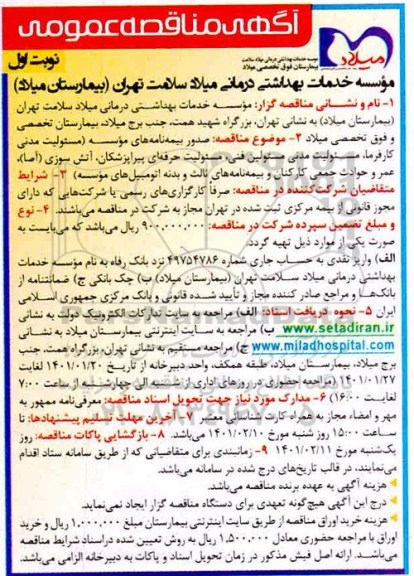 آگهی مناقصه عمومی
میلاد
موسسه خدمات بهداشتی درمانی میلاد سلامت
بیمارستان فوق تخصصی میلاد
نوبت اول
مؤسسه خدمات بهداشتی درمانی میلاد سلامت تهران (بیمارستان میلاد)
۱- نام و نشانی مناقصه گزار: مؤسسه خدمات بهداشتی درمانی میلاد سلامت تهران
(بیمارستان میلاد) به نشانی تهران، بزرگراه شهید همت، جنب برج میلاد، بیمارستان تخصصی
و فوق تخصصی میلاد ۲- موضوع مناقصه: صدور بیمه‌نامه‌های مؤسسه (مسئولیت مدنی
کارفرما، مسئولیت مدنی مسئولین فنی، مسئولیت حرفه‌ای پیراپزشکان، آتش سوزی (آصا)،
عمر و حوادث جمعی کارکنان و بیمه‌نامه‌های ثالث و بدنه اتومبیل‌های مؤسسه) ۳- شرایط
متقاضیان شرکت‌کننده در مناقصه: صرفاً کارگزاری‌های رسمی یا شرکت‌هایی که دارای
مجوز قانونی از بیمه مرکزی ثبت شده در تهران مجاز به شرکت در مناقصه می‌باشند. ۴- نوع
و مبلغ تضمین سپرده شرکت در مناقصه: ۹۰۰,۰۰۰,۰۰۰ ریال می‌باشد که می‌بایست به
صورت یکی از موارد ذیل تهیه گردد:
الف) واریز نقدی به حساب جاری شماره ۴۹۷۵۴۷۸۶ نزد بانک رفاه به نام مؤسسه خدمات
بهداشتی درمانی میلاد سلامت تهران (بیمارستان میلاد) ب) چک بانکی ج) ضمانتنامه از
بانک‌ها و مراجع صادر کننده مجاز و تأیید شده قانونی و بانک مرکزی جمهوری اسلامی
ایران ۵- نحوه دریافت اسناد: الف) مراجعه به سایت تدارکات الکترونیک دولت به نشانی
www.setadiran.ir ب) مراجعه به سایت اینترنتی بیمارستان میلاد به نشانی
www.miladhospital.com ج) مراجعه مستقیم به نشانی تهران، بزرگراه همت، جنب
برج میلاد، بیمارستان میلاد، طبقه همکف، واحد دبیرخانه از تاریخ ۱۴۰۱/۰۱/۲۰ لغایت
۱۴۰۱/۰۱/۲۷ (مراجعه حضوری در روزهای اداری از شنبه الی چهارشنبه از ساعت ۷:۰۰
لغایت ۱۶:۰۰) ۶- مدارک مورد نیاز جهت تحویل اسناد مناقصه: معرفی‌نامه ممهور به
مهر و امضاء مجاز به همراه کارت شناسایی معتبر ۷- آخرین مهلت تسلیم پیشنهادها: تا
ساعت ۱۵:۰۰ روز شنبه مورخ ۱۴۰۱/۰۲/۱۰ می‌باشد. ۸- بازگشایی پاکات مناقصه: روز
یکشنبه مورخ ۱۴۰۱/۰۲/۱۱ ۹- زمانبندی برای متقاضیانی که از طریق سامانه ستاد اقدام
می‌نمایند، در قالب تاریخ‌های درج شده در سامانه می‌باشد.
* هزینه آگهی به عهده برنده مناقصه می‌باشد.
* درج این آگهی هیچ‌گونه تعهدی برای دستگاه مناقصه گزار ایجاد نمی‌نماید.
* هزینه خرید اوراق مناقصه از طریق سایت اینترنتی بیمارستان مبلغ ۱,۰۰۰,۰۰۰ ریال و خرید
اوراق با مراجعه حضوری معادل ۱,۵۰۰,۰۰۰ ریال به روش تعیین شده دراسناد شرایط مناقصه
می‌باشد. ارائه اصل فیش مذکور در زمان تحویل اسناد و پاکات به دبیرخانه الزامی می‌باشد.